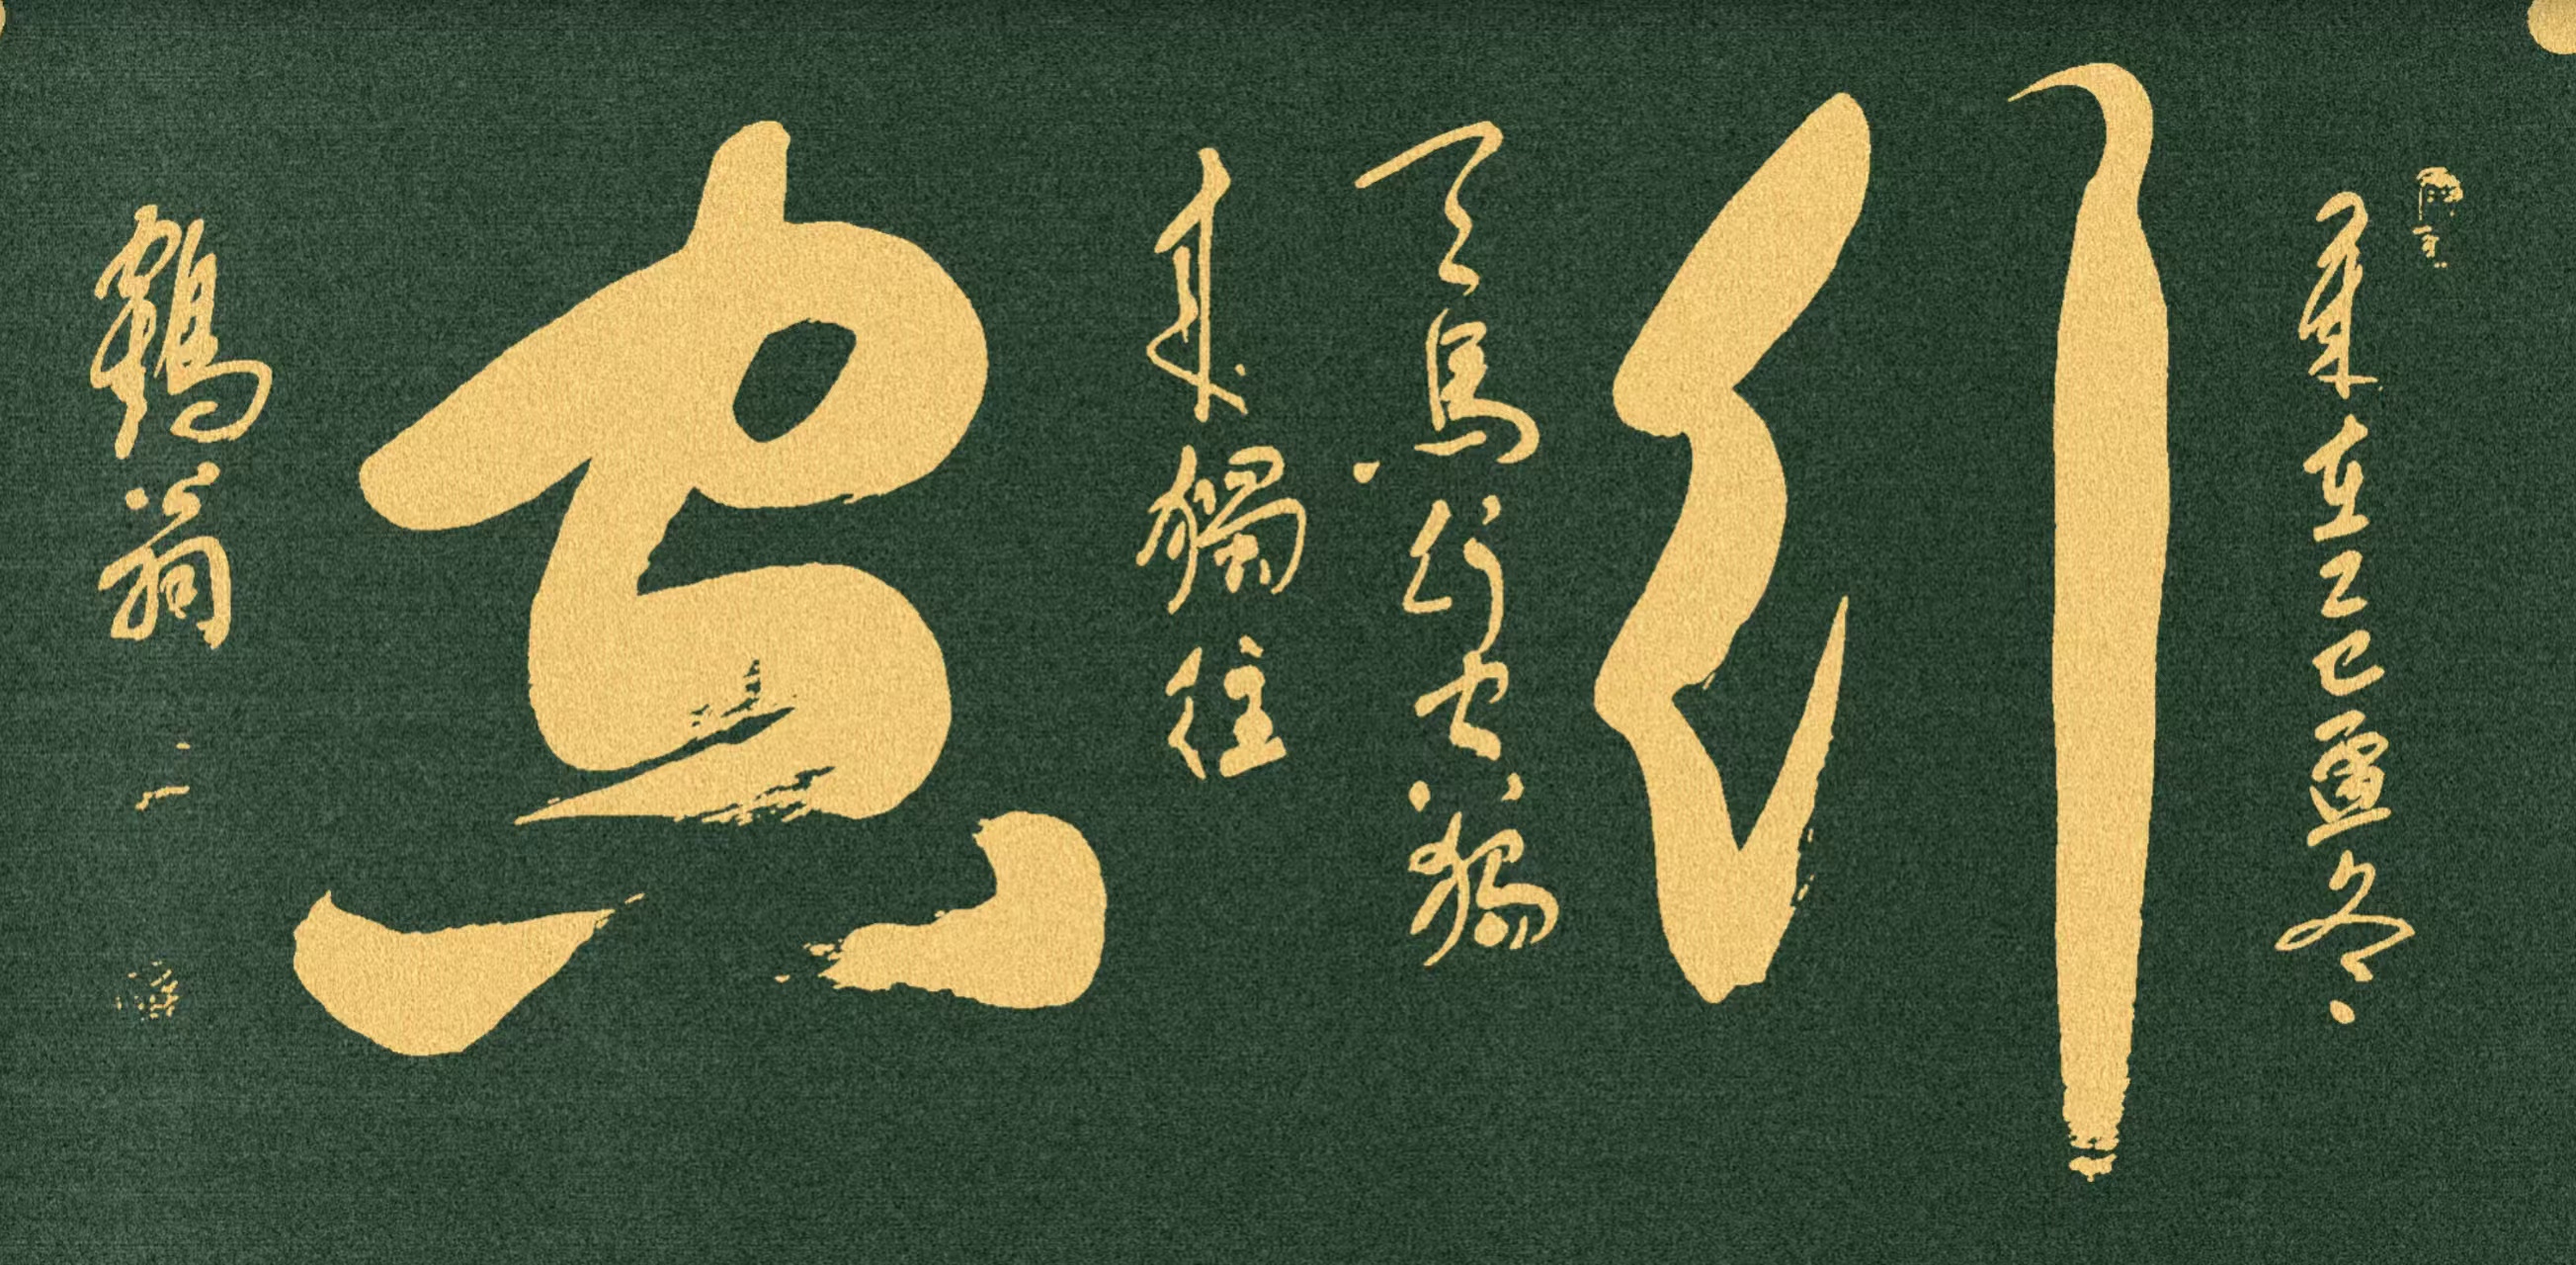 歲在乙巳孟冬
行
天馬行空獨
來獨往
鶴翁